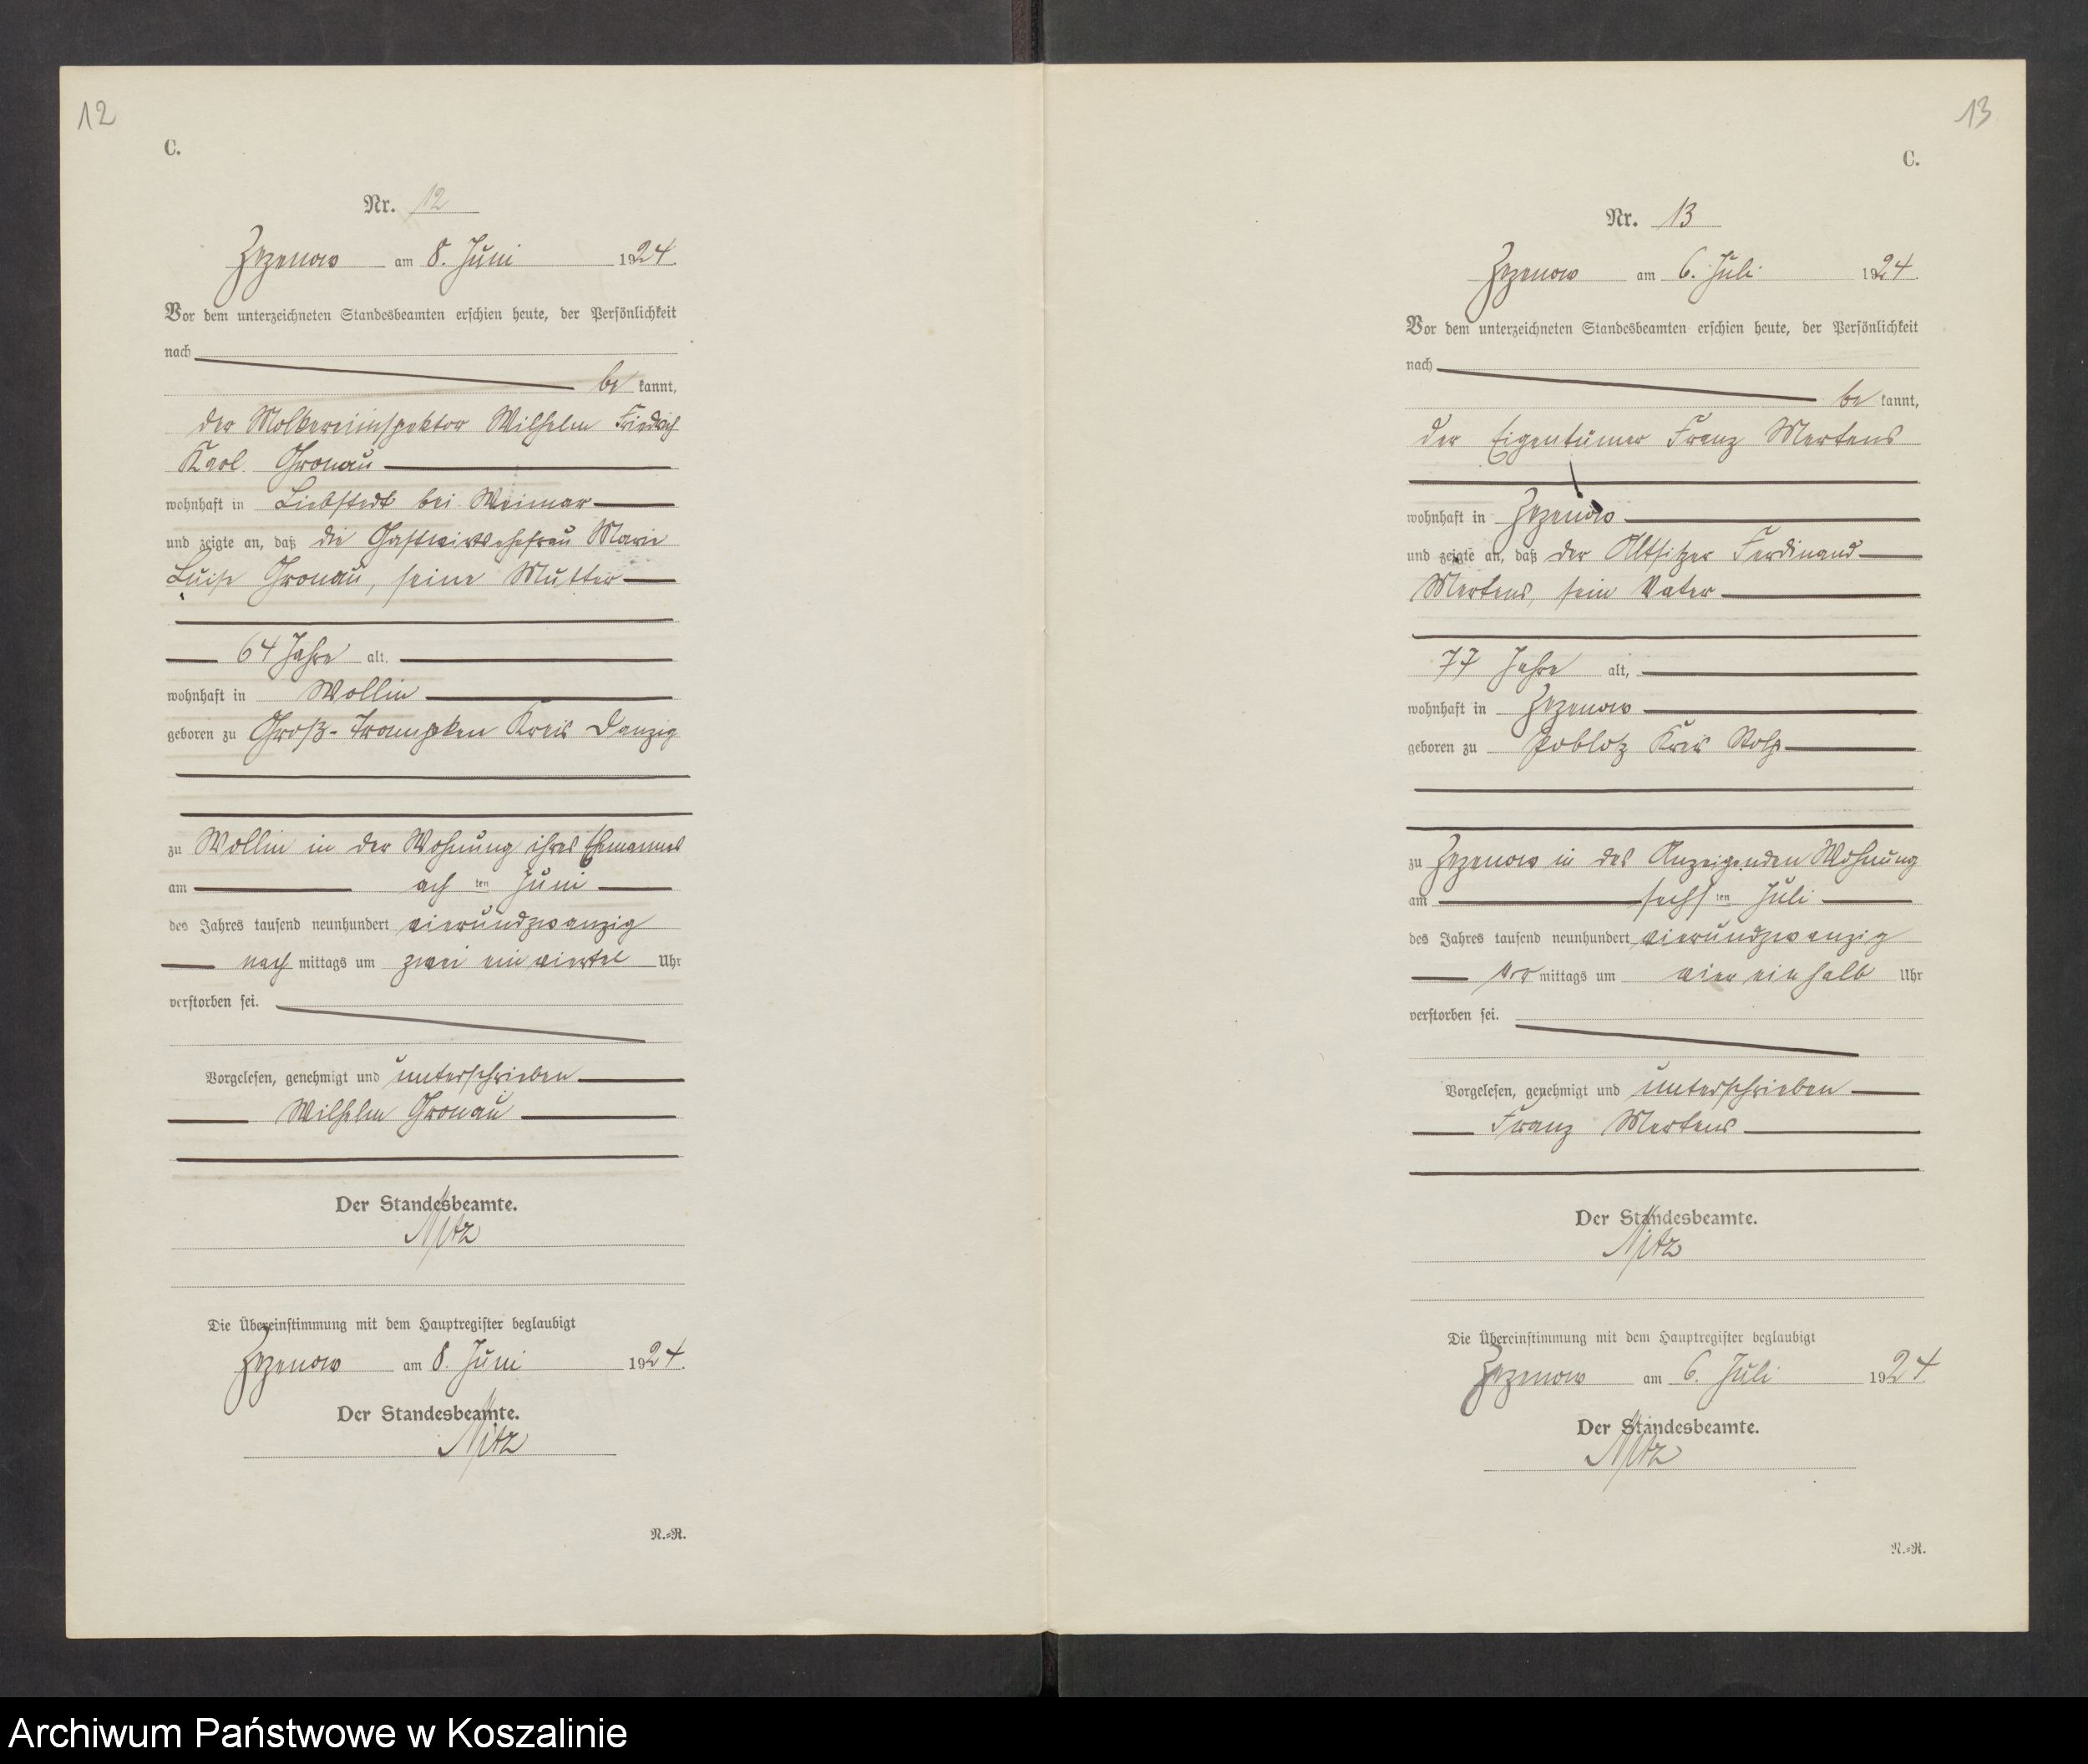 12
C.
Nr. 12
Zezenow am 8. Juni 1924
Vor dem unterzeichneten Standesbeamten erschien heute, der Persönlichkeit
nach
be kannt,
der Molkereiinspektor Wilhelm Friedrich
Karl Gronau
wohnhaft in Liebstedt bei Weimar
und zeigte an, daß die Gastwirtsehefrau Marie
Luise Gronau, seine Mutter
64 Jahre alt,
wohnhaft in Wollin
geboren zu Groß-Trampken Kreis Danzig
zu Wollin in der Wohnung ihres Ehemannes
am ach ten Juni
des Jahres tausend neunhundert vierundzwanzig
nach mittags um zwei ein viertel Uhr
verstorben sei.
Vorgelesen, genehmigt und unterschrieben
Wilhelm Gronau
Der Standesbeamte.
Nitz
Die Übereinstimmung mit dem Hauptregister beglaubigt
Zezenow am 8. Juni 1924.
Der Standesbeamte.
Nitz
N.=R.
13
C.
Nr. 13
Zezenow am 6. Juli 1924.
Vor dem unterzeichneten Standesbeamten erschien heute, der Persönlichkeit
nach
be kannt,
der Eigentümer Franz Mertens
wohnhaft in Zezenow
und zeigte an, daß der Altsitzer Ferdinand
Mertens, sein Vater
77 Jahre alt,
wohnhaft in Zezenow
geboren zu Poblotz Kreis Stolp
zu Zezenow in des Anzeigenden Wohnung
am sechs ten Juli
des Jahres tausend neunhundert vierundzwanzig
vor mittags um vier ein halb Uhr
verstorben sei.
Vorgelesen, genehmigt und unterschrieben
Franz Mertens
Der Standesbeamte.
Nitz
Die Übereinstimmung mit dem Hauptregister beglaubigt
Zezenow am 6. Juli 1924.
Der Standesbeamte.
Nitz
N.=R.
Archiwum Państwowe w Koszalinie